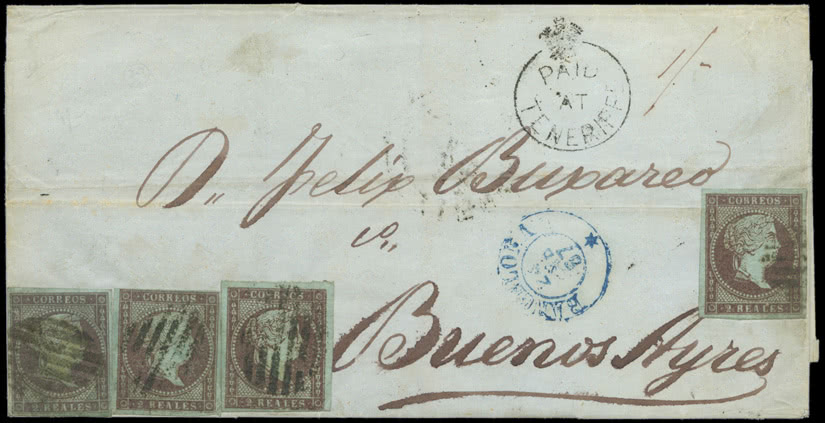 PAID
AT
TENERIFFE
1/-
Dn Felix Buxareo
CORREOS
2 REALES
Buenos Ayres
CORREOS
2 REALES
CORREOS
2 REALES
CORREOS
2 REALES